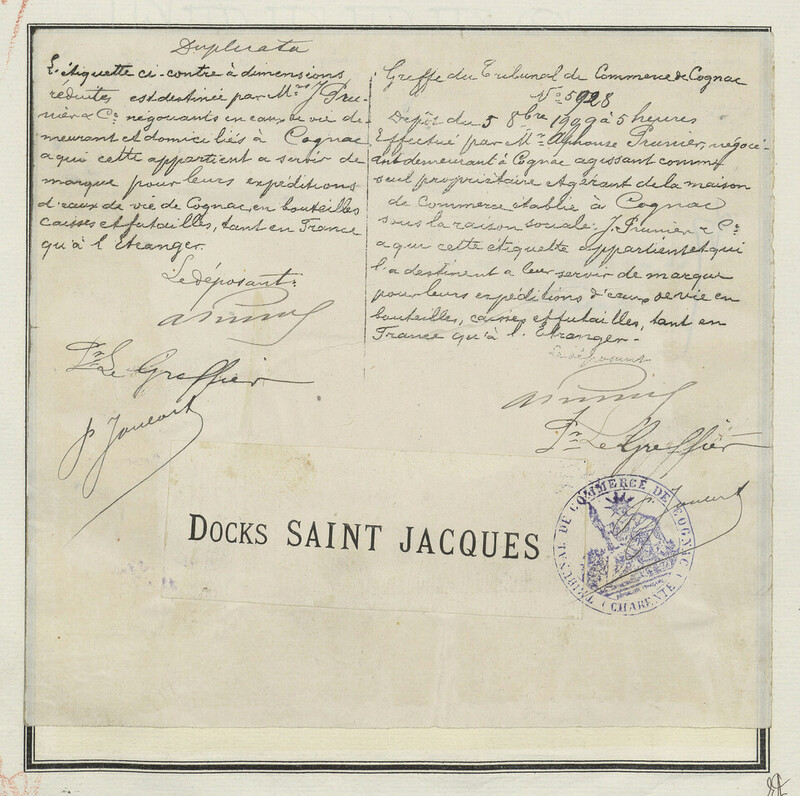 Duplicata
L'étiquette ci-contre à dimensions
réduites est destinée par Mrs J. Pru-
nier & Cie négociants en eaux de vie de-
meurant et domiciliés à Cognac
a qui cette appartient a servir de
marque pour leurs expéditions
d'eaux de vie de Cognac, en bouteilles
caisses et futailles, tant en France
qu'à l'Etranger.
Le déposant:
APrunier
Pr Le Greffier
Greffe du Tribunal de Commerce de Cognac
No 5928
Dépôt du 5 8bre à 5 heures
Effectué par Mr Alphonse Prunier, négoci-
ant demeurant à Cognac agissant comme
seul propriétaire et gérant de la maison
de Commerce établie à Cognac
sous la raison sociale: J. Prunier & Cie
a qui cette étiquette appartient et qui
l'a destinent a leur servir de marque
pour leurs expéditions d'eaux de vie en
bouteilles, caisses et futailles, tant en
France qu'à l'Etranger-
Le déposant
APrunier
Pr Le Greffier
DOCKS SAINT JACQUES
TRIBUNAL DE COMMERCE DE COGNAC
(CHARENTE)